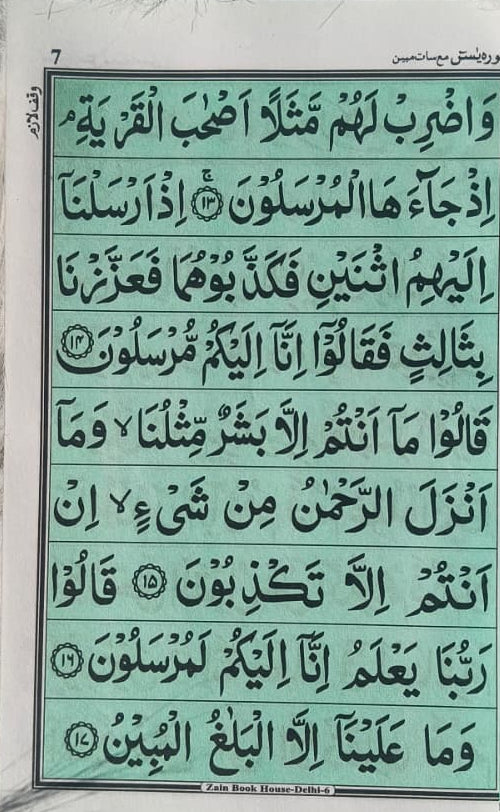 7
سورہ یٰسٓ مع سات مبین
وقف لازم
وَاضْرِبْ لَهُمْ مَّثَلًا اَصْحٰبَ الْقَرْيَةِ ۘ
اِذْ جَآءَهَا الْمُرْسَلُوْنَ ۚ ﴿۱۳﴾ اِذْ اَرْسَلْنَآ
اِلَيْهِمُ اثْنَيْنِ فَكَذَّبُوْهُمَا فَعَزَّزْنَا
بِثَالِثٍ فَقَالُوْٓا اِنَّآ اِلَيْكُمْ مُّرْسَلُوْنَ ﴿۱۴﴾
قَالُوْا مَآ اَنْتُمْ اِلَّا بَشَرٌ مِّثْلُنَا ۙ وَمَآ
اَنْزَلَ الرَّحْمٰنُ مِنْ شَیْءٍ ۙ اِنْ
اَنْتُمْ اِلَّا تَكْذِبُوْنَ ﴿۱۵﴾ قَالُوْا
رَبُّنَا يَعْلَمُ اِنَّآ اِلَيْكُمْ لَمُرْسَلُوْنَ ﴿۱۶﴾
وَمَا عَلَيْنَآ اِلَّا الْبَلٰغُ الْمُبِيْنُ ﴿۱۷﴾
Zain Book House-Delhi-6